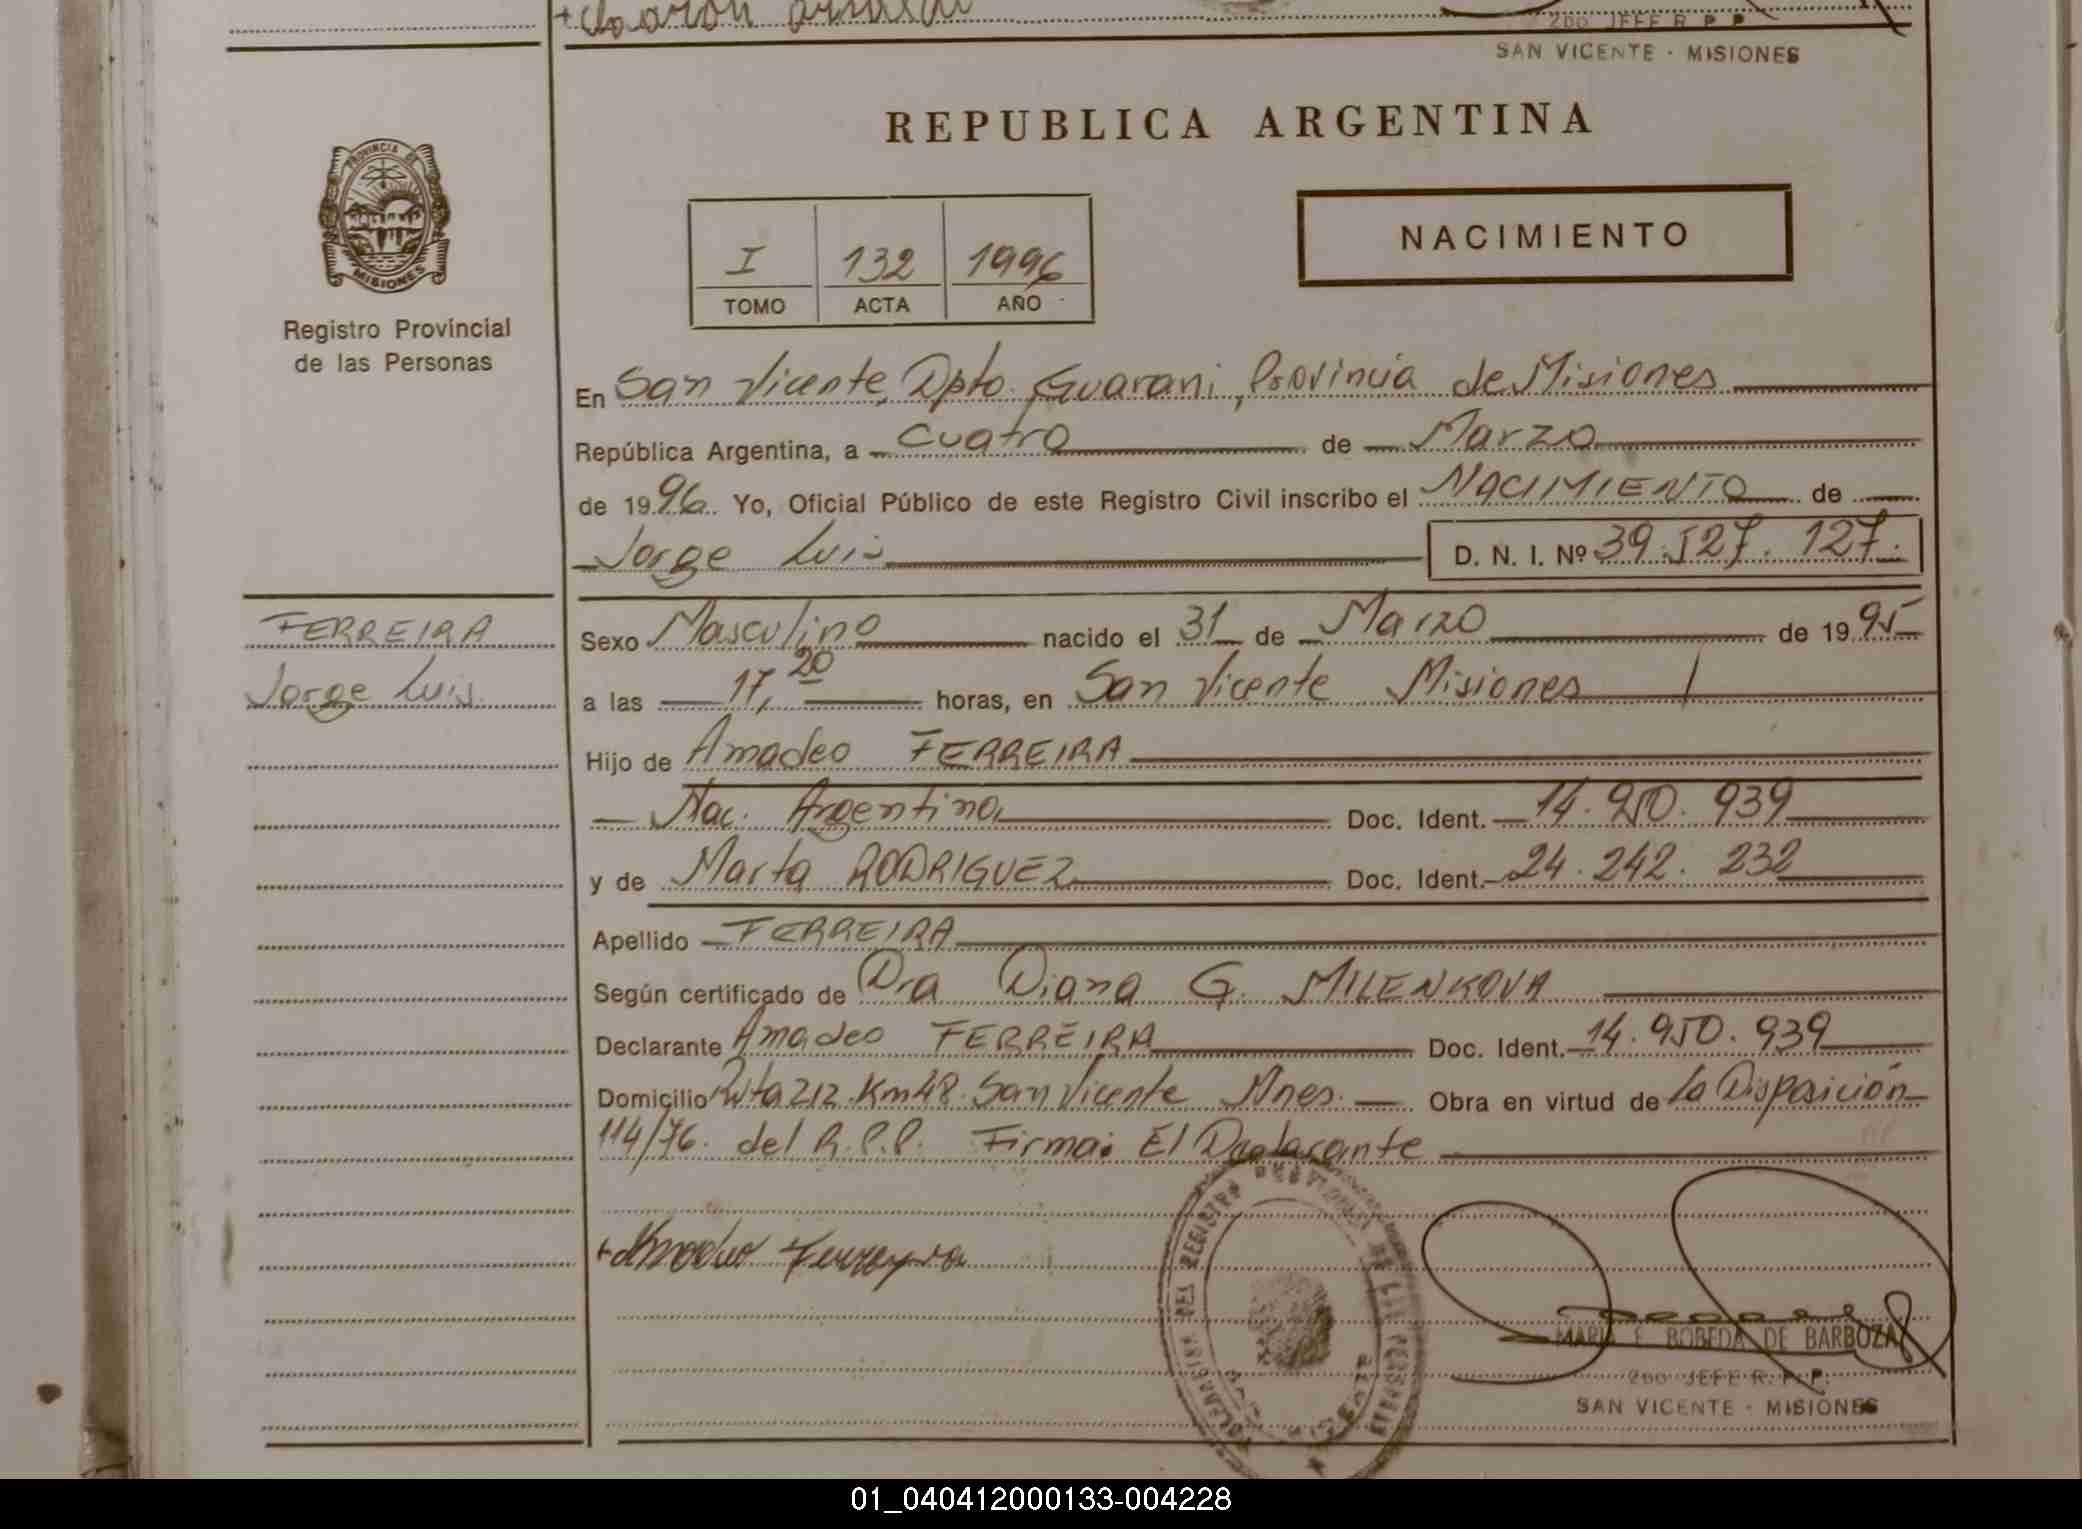 2do JEFE R.P.P.
SAN VICENTE - MISIONES
REPUBLICA ARGENTINA
PROVINCIA DE
MISIONES
Registro Provincial
de las Personas
I 132 1996
TOMO ACTA AÑO
NACIMIENTO
En San Vicente, Dpto. Guarani, Provincia de Misiones
República Argentina, a cuatro de Marzo
de 1996. Yo, Oficial Público de este Registro Civil inscribo el NACIMIENTO de
Jorge Luis D. N. I. Nº 39.527.127.
FERREIRA
Jorge Luis
Sexo Masculino nacido el 31 de Marzo de 1995
a las 17,20 horas, en San Vicente Misiones
Hijo de Amadeo FERREIRA
Nac. Argentina Doc. Ident. 14.950.939
y de Marta RODRIGUEZ Doc. Ident. 24.242.232
Apellido FERREIRA
Según certificado de Dra Diana G. MILENKOVA
Declarante Amadeo FERREIRA Doc. Ident. 14.950.939
Domicilio Ruta 212 Km 48. San Vicente Mnes. Obra en virtud de la Disposición
114/76. del R.P.P. Firma: El Declarante
Amadeo Ferreyra
MARIA E. BOBEDA DE BARBOZA
2do JEFE R.P.P.
SAN VICENTE - MISIONES
01_040412000133-004228